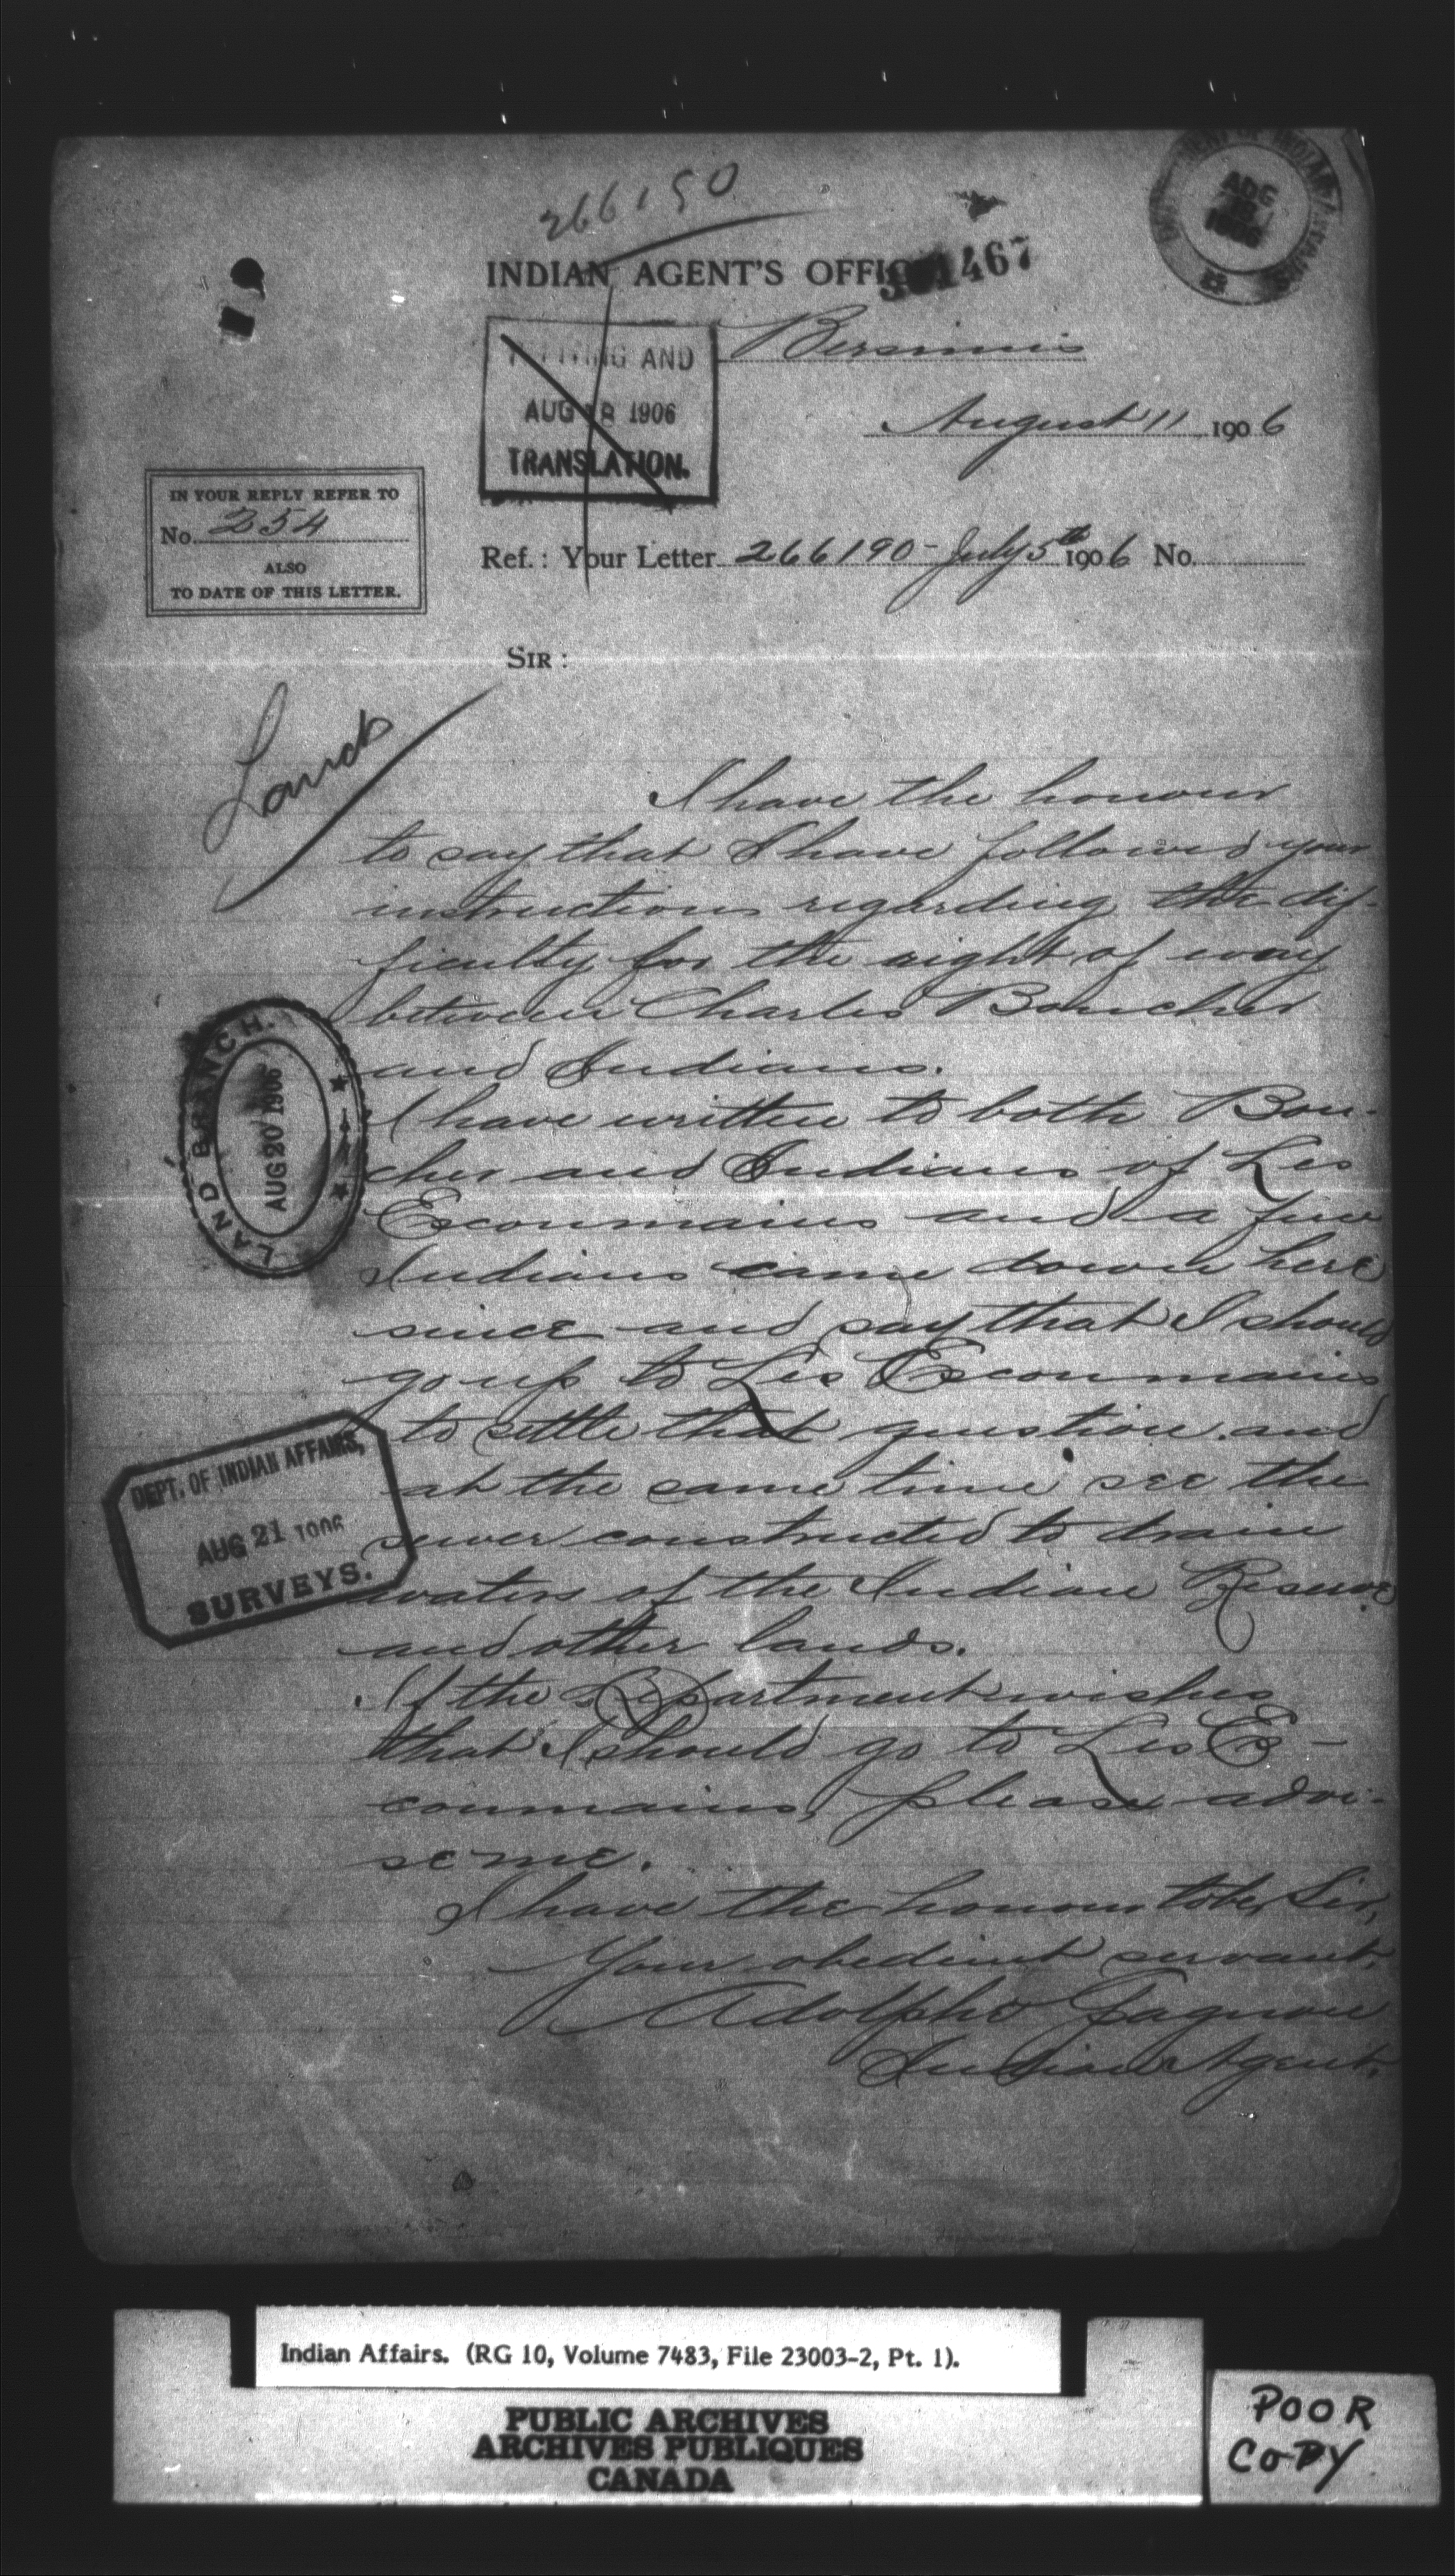 266190
INDIAN AGENT'S OFFICE
301467
AUG
18
1906
Bersimis
AND
AUG 18 1906
TRANSLATION.
August 11 1906
IN YOUR REPLY REFER TO
No. 254
ALSO
TO DATE OF THIS LETTER.
Ref.: Your Letter 266190 - July 5th 1906 No.
SIR:
Land
I have the honour
to say that I have followed your
instructions regarding the dif-
ficulty for the right of way
between Charles Boucher
and Indians.
I have written to both Bou-
cher and Indians of Les
Escoumains and a few
Indians came down here
since and say that I should
go up to Les Escoumains
to settle that question and
at the same time see the
sewer constructed to drain
waters of the Indian Reserve
and other lands.
If the Department wishes
that I should go to Les Es-
coumains, please advi-
se me.
I have the honour to be, Sir,
Your obedient servant,
Adolphe Gagnon
Indian Agent.
LAND BRANCH.
AUG 20 1906
DEPT. OF INDIAN AFFAIRS,
AUG 21 1906
SURVEYS.
Indian Affairs. (RG 10, Volume 7483, File 23003-2, Pt. 1).
PUBLIC ARCHIVES
ARCHIVES PUBLIQUES
CANADA
POOR
COPY